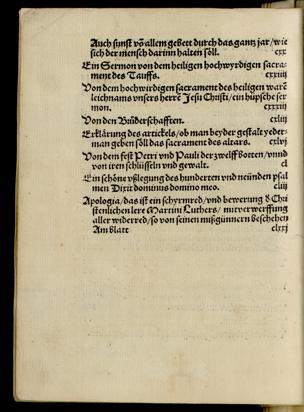 Auch sunst võ allem gebett durch das gantz jar/ wie
sich der mensch darinn halten soll. cxx
Ein Sermon von dem heiligen hochwyrdigen sacra-
ment des Tauffs. cxxiij
Von dem hochwirdigen sacrament des heiligen warē
leichnams vnsers herrē Jesu Christi/ ein hüpsche ser
mon. cxxxiij
Von den Brüderschafften. cxliij
Erklärung des artickels/ ob man beyder gestalt yeder-
man geben söll das sacrament des altars. cxlvj
Von dem fest Petri vnd Pauli der zwelffbotten/ vnnd
von iren schlüsseln vnd gewalt. clj
Ein schöne vßlegung des hunderten vnd neünden psal
men Dixit dominus domino meo.
Apologia/ das ist ein schyrmred/ vnd bewerung d Chri
stenlichen lere Martini Luthers/ mit verwerffung
aller widerred/ so von seinen mißgünnern beschehen
Am blatt clxxj